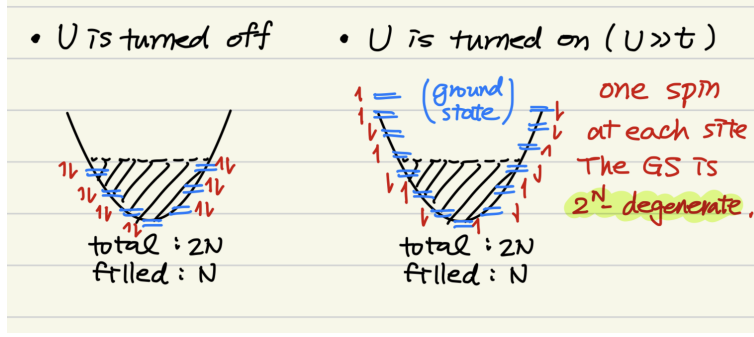 • U is turned off
total : 2N
filled : N
• U is turned on (U≫t)
(ground state)
total : 2N
filled : N
one spin
at each site
The GS is
2^N- degenerate.